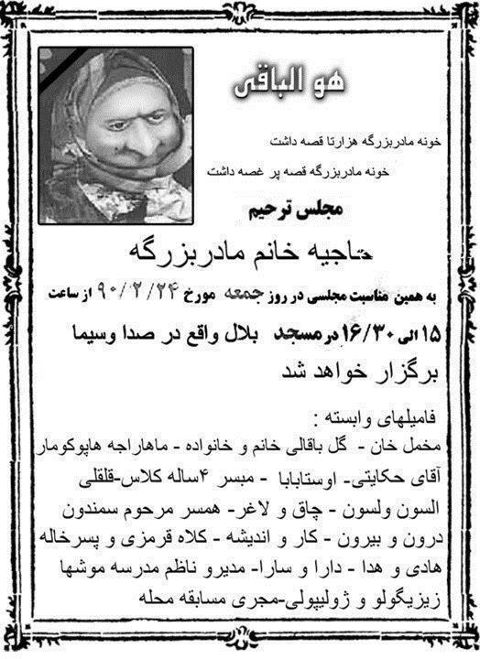 هو الباقی
خونه مادربزرگه هزارتا قصه داشت
خونه مادربزرگه قصه پر غصه داشت
مجلس ترحیم
حاجیه خانم مادربزرگه
به همین مناسبت مجلسی در روز جمعه مورخ ۹۰/۲/۲۴ از ساعت
۱۵ الی ۱۶/۳۰ در مسجد بلال واقع در صدا وسیما
برگزار خواهد شد
فامیلهای وابسته :
مخمل خان - گل باقالی خانم و خانواده - ماهاراجه هاپوکومار
آقای حکایتی- اوستابابا - مبسر ۴ساله کلاس-قلقلی
السون ولسون - چاق و لاغر- همسر مرحوم سمندون
درون و بیرون - کار و اندیشه - کلاه قرمزی و پسرخاله
هادی و هدا - دارا و سارا- مدیرو ناظم مدرسه موشها
زیزیگولو و ژولیپولی-مجری مسابقه محله